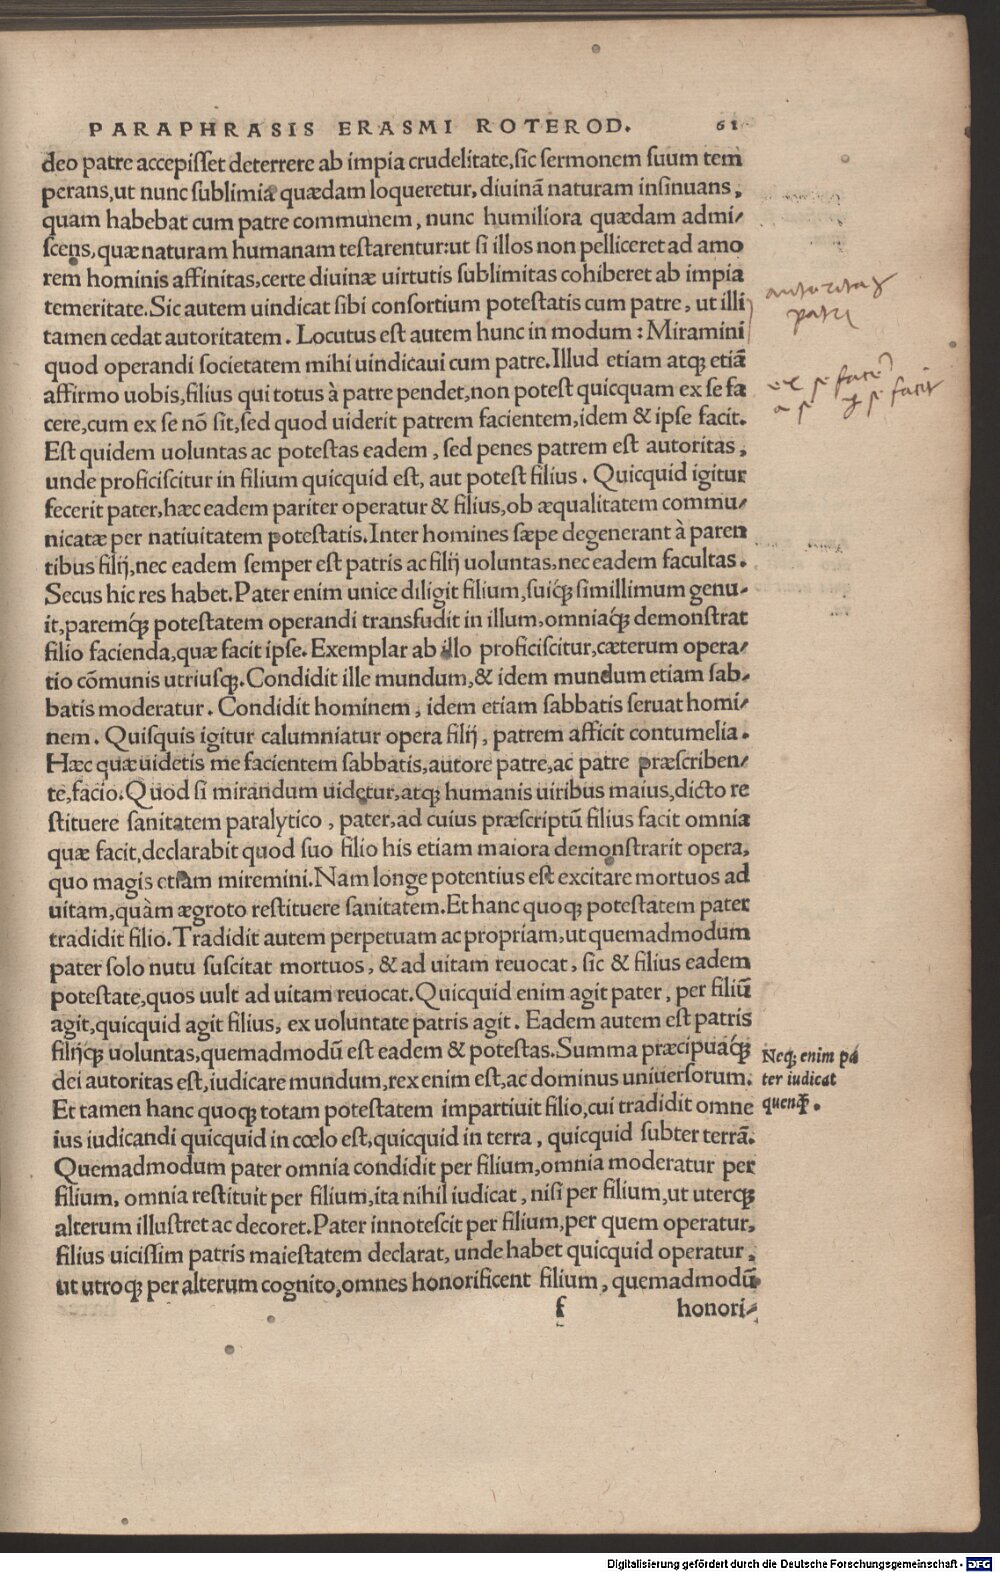 PARAPHRASIS ERASMI ROTEROD. 61
deo patre accepisset deterrere ab impia crudelitate, sic sermonem suum tem
perans, ut nunc sublimia quædam loqueretur, diuinã naturam insinuans,
quam habebat cum patre communem, nunc humiliora quædam admi/
scens, quæ naturam humanam testarentur: ut si illos non pelliceret ad amo
rem hominis affinitas, certe diuinæ uirtutis sublimitas cohiberet ab impia
temeritate. Sic autem uindicat sibi consortium potestatis cum patre, ut illi
tamen cedat autoritatem. Locutus est autem hunc in modum: Miramini
quod operandi societatem mihi uindicaui cum patre. Illud etiam atqꝫ etiã
affirmo uobis, filius qui totus à patre pendet, non potest quicquam ex se fa
cere, cum ex se nõ sit, sed quod uiderit patrem facientem, idem & ipse facit.
Est quidem uoluntas ac potestas eadem, sed penes patrem est autoritas,
unde proficiscitur in filium quicquid est, aut potest filius. Quicquid igitur
fecerit pater, hæc eadem pariter operatur & filius, ob æqualitatem commu/
nicatæ per natiuitatem potestatis. Inter homines sæpe degenerant à paren
tibus filij, nec eadem semper est patris ac filij uoluntas, nec eadem facultas.
Secus hic res habet. Pater enim unice diligit filium, suiq́ꝫ simillimum genu/
it, paremq́ꝫ potestatem operandi transfudit in illum, omniaq́ꝫ demonstrat
filio facienda, quæ facit ipse. Exemplar ab illo proficiscitur, cæterum opera/
tio cõmunis utriusqꝫ. Condidit ille mundum, & idem mundum etiam sab/
batis moderatur. Condidit hominem, idem etiam sabbatis seruat homi/
nem. Quisquis igitur calumniatur opera filij, patrem afficit contumelia.
Hæc quæ uidetis me facientem sabbatis, autore patre, ac patre præscriben/
te, facio. Quod si mirandum uidetur, atqꝫ humanis uiribus maius, dicto re
stituere sanitatem paralytico, pater, ad cuius præscriptũ filius facit omnia
quæ facit, declarabit quod suo filio his etiam maiora demonstrarit opera,
quo magis etiam miremini. Nam longe potentius est excitare mortuos ad
uitam, quàm ægroto restituere sanitatem. Et hanc quoqꝫ potestatem pater
tradidit filio. Tradidit autem perpetuam ac propriam, ut quemadmodum
pater solo nutu suscitat mortuos, & ad uitam reuocat, sic & filius eadem
potestate, quos uult ad uitam reuocat. Quicquid enim agit pater, per filiũ
agit, quicquid agit filius, ex uoluntate patris agit. Eadem autem est patris
filijqꝫ uoluntas, quemadmodũ est eadem & potestas. Summa præcipuaq́ꝫ
dei autoritas est, iudicare mundum, rex enim est, ac dominus uniuersorum.
Et tamen hanc quoqꝫ totam potestatem impartiuit filio, cui tradidit omne
ius iudicandi quicquid in cœlo est, quicquid in terra, quicquid subter terrã.
Quemadmodum pater omnia condidit per filium, omnia moderatur per
filium, omnia restituit per filium, ita nihil iudicat, nisi per filium, ut uterqꝫ
alterum illustret ac decoret. Pater innotescit per filium, per quem operatur,
filius uicissim patris maiestatem declarat, unde habet quicquid operatur,
ut utroqꝫ per alterum cognito, omnes honorificent filium, quemadmodũ
f honori/
autoritas
patri
ex se facere
a se se facit
Neqꝫ enim pa
ter iudicat
quenqꝫ.
Digitalisierung gefördert durch die Deutsche Forschungsgemeinschaft - DFG